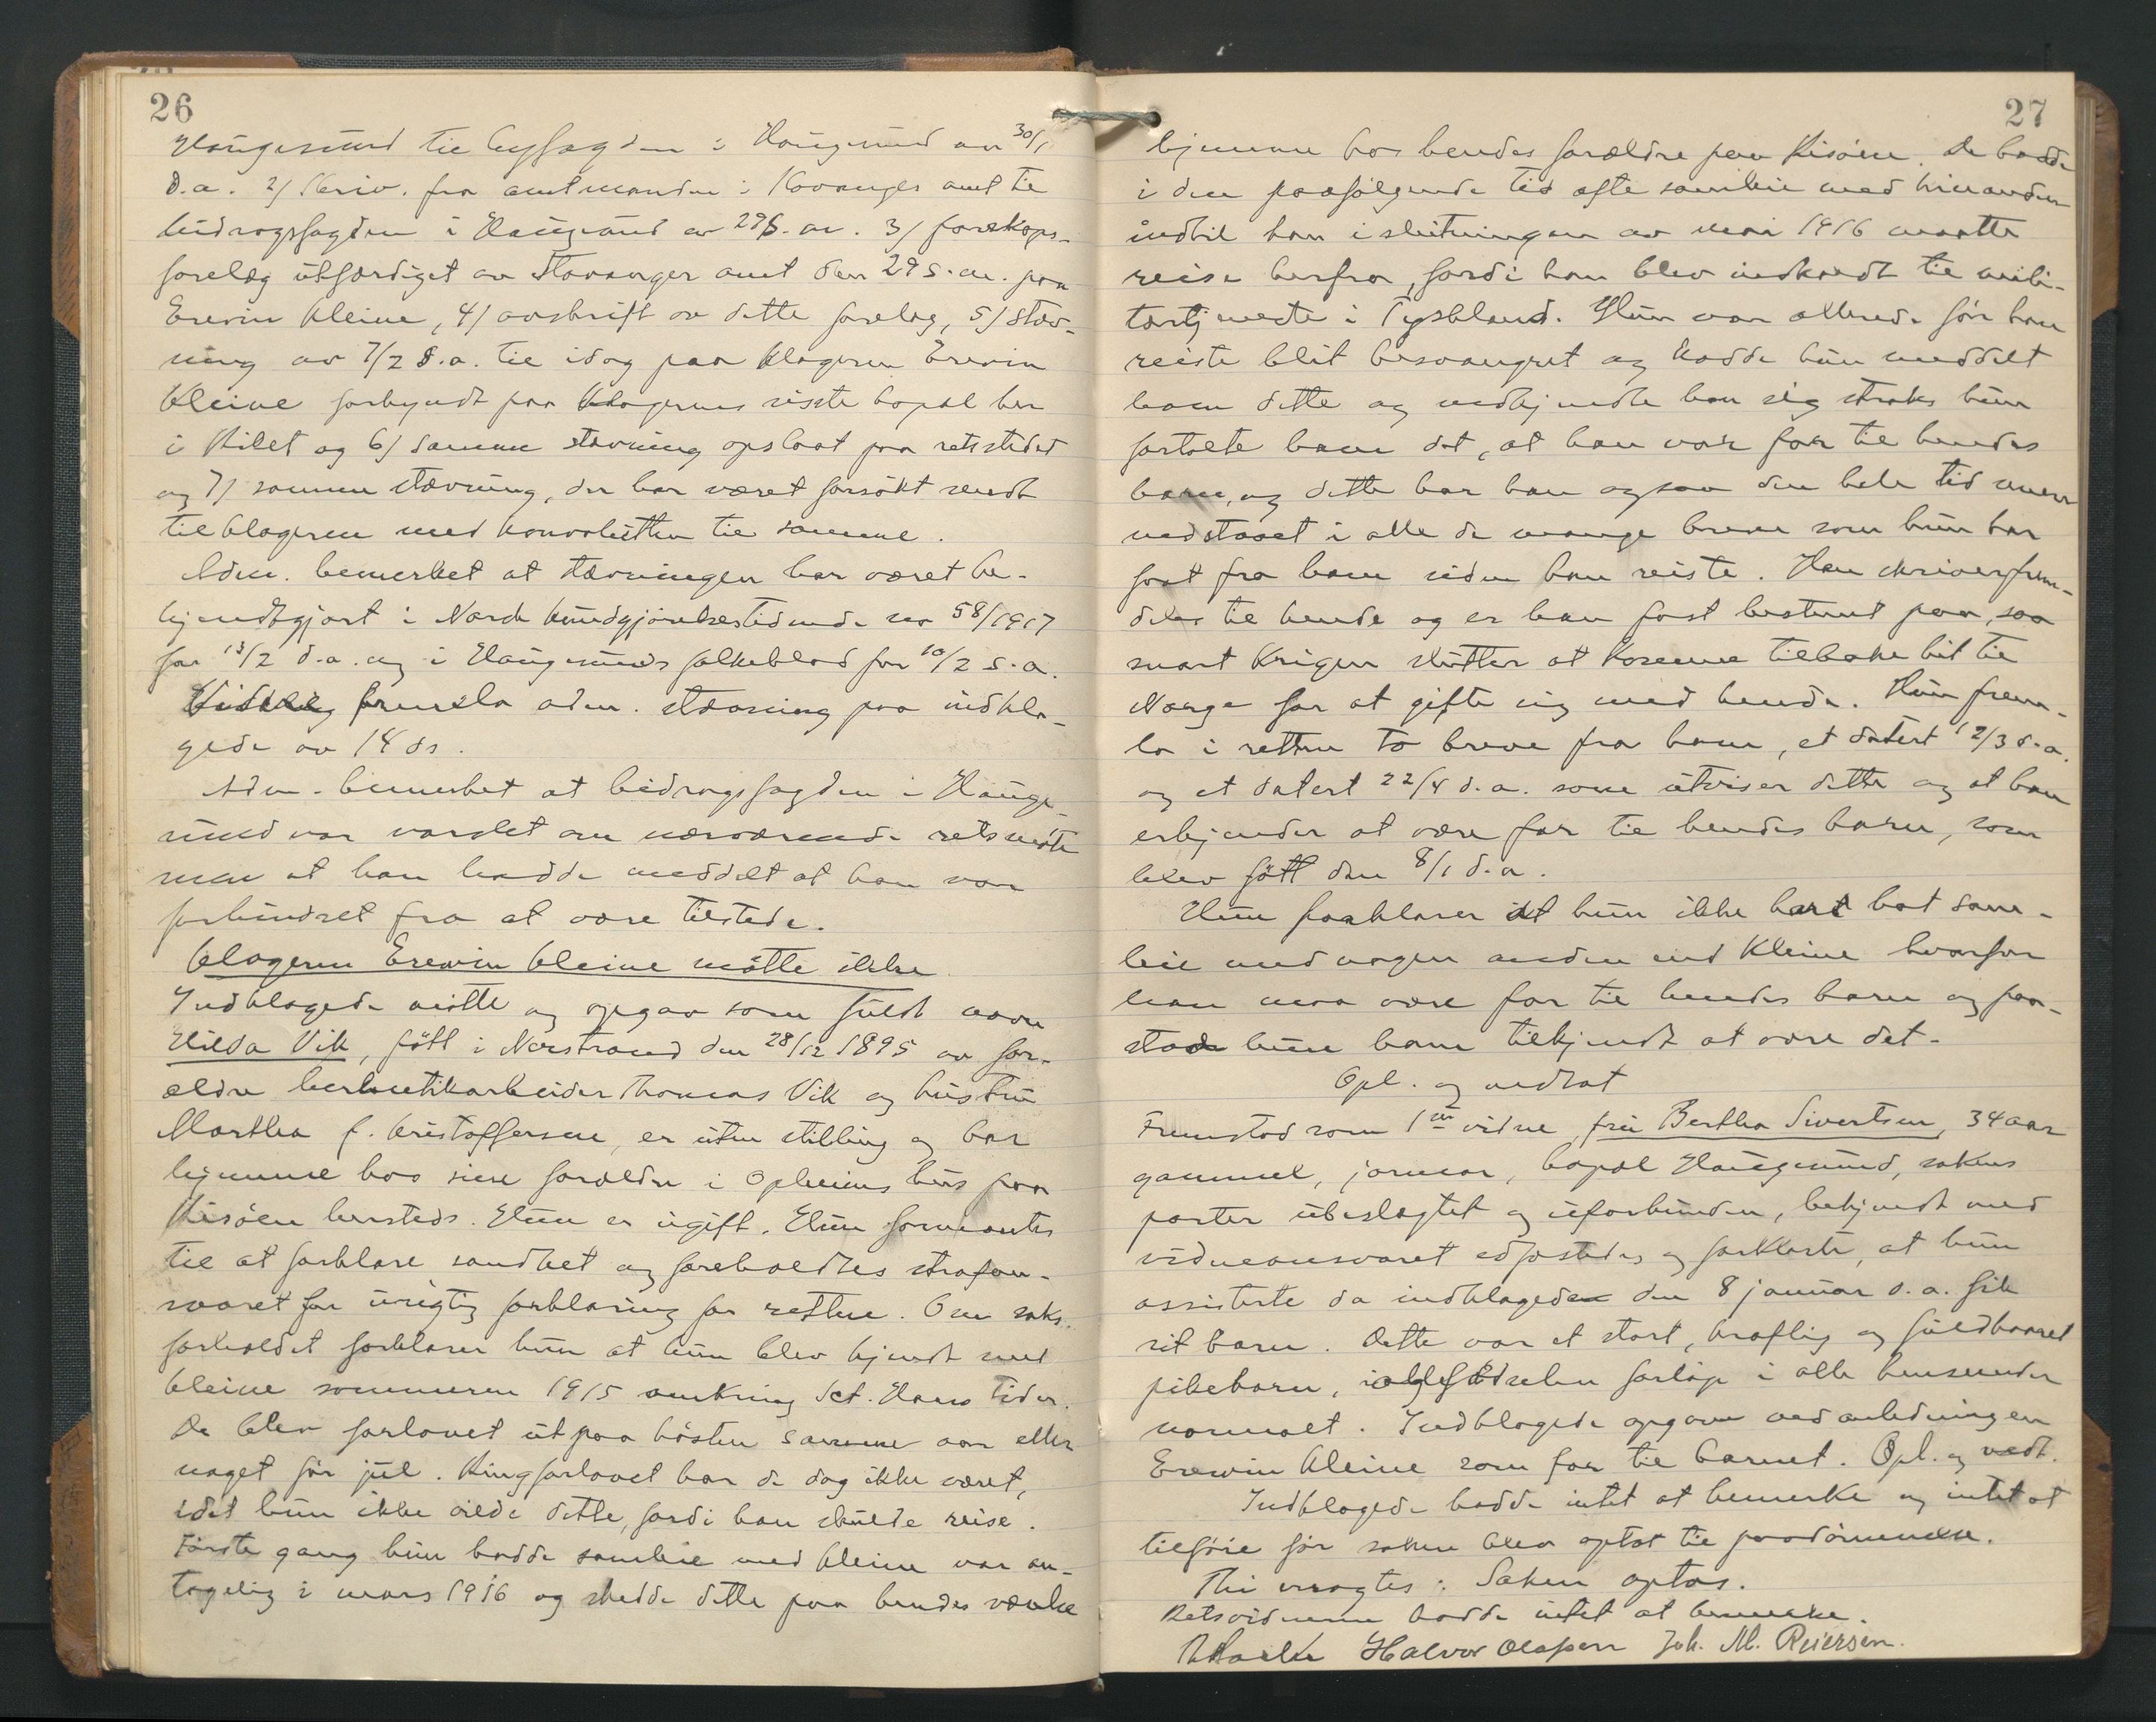 26
Haugesund til byfogden i Haugesund av 30/1
d.a. 2/ skriv. fra amtmanden i Stavanger amt til
bidragsfogden i Haugesund av 29 s.m. 3/ farskaps-
forelæg utfærdiget av Stavanger amt den 29 s.m. paa
Erevin Kleine, 4/ avskrift av dette forelæg, 5/ stæv-
ning av 7/2 d.a. til idag paa klageren Erevin
Kleine forkyndt paa klagerens sisste bopæl her
i Kilet og 6/ samme stævning opslaat paa retsstedet
og 7/ samme stævning, der har været forsøkt sendt
til klageren med konvolutten til samme.
Adm. bemerket at stævningen har været be-
kjendtgjort i Norsk kundgjørelsestidende no 58/1917
for 13/2 d.a. og i Haugesunds folkeblad for 10/2 s.a.
Videre fremla adm. stævning paa indkla-
gede av 14 ds.
Adm. bemerket at bidragsfogden i Hauge-
sund var varslet om nærværende retsmøte
men at han hadde meddelt at han var
forhindret fra at være tilstede.
Klageren Erewin Kleine møtte ikke
Indklagede møtte og opgav som fuldt navn
Hilda Vik, født i Nerstrand den 28/12 1895 av for-
ældre hermetikarbeider Thomas Vik og hustru
Martha f. Kristoffersen, er uten stilling og bor
hjemme hos sine forældre i Opheims hus paa
Risøen hersteds. Hun er ugift. Hun formantes
til at forklare sandhet og foreholdtes strafan-
svaret for urigtig forklaring for retten. Om saks-
forholdet forklarer hun at hun blev kjendt med
Kleine sommeren 1915 omkring Sct. Hans tider.
De blev forlovet ut paa høsten samme aar eller
noget før jul. Ringforlovet har de dog ikke været,
idet hun ikke vilde dette, fordi han skulde reise.
Første gang hun hadde samleie med Kleine var an-
tagelig i mars 1916 og skedde dette paa hendes værelse
27
hjemme hos hendes forældre paa Risøen. De hadde
i den paafølgende tid ofte samleie med hinanden
indtil han i slutningen av mai 1916 maatte
reise herfra, fordi han blev indkaldt til mili-
tærtjeneste i Tyskland. Hun var allerede før han
reiste blit besvangret og hadde hun meddelt
ham dette og vedkjendte han sig straks hun
fortalte ham det, at han var far til hendes
barn, og dette har han ogsaa den hele tid
vedstaaet i alle de mange breve som hun har
faat fra ham siden han reiste. Han skriver frem-
deles til hende og er han fast bestemt paa, saa
snart krigen slutter at komme tilbake hit til
Norge for at gifte sig med hende. Hun frem-
la i retten to breve fra ham, et datert 12/3 d.a.
og et datert 22/4 d.a. som utviser dette og at han
erkjender at være far til hendes barn, som
blev født den 8/1 d.a.
Hun forklarer at hun ikke har hat sam-
leie med nogen anden end Kleine hvorfor
han maa være far til hendes barn og paa-
stod hun ham tilkjendt at være det.
Opl. og vedtat
Fremstod som 1ste vidne fru Bertha Sivertsen, 34 aar
gammel, jormor, bopæl Haugesund, sakens
parter ubeslægtet og uforbunden, bekjendt med
vidneansvaret edfæstedes og forklarte, at hun
assisterte da indklagede den 8 januar d.a. fik
sit barn. Dette var et stort, kraftig og fuldbaaret
pikebarn, og fødselen forløp i alle henseender
normalt. Indklagede opgav ved anledningen
Erewin Kleine som far til barnet. Opl. og vedt.
Indklagede hadde intet at bemerke og intet at
tilføie før saken blev optat til paadømmelse.
Thi vragtes: Saken optas.
Retsvidnerne hadde intet at bemerke.
Halvor Olassen Joh. M. Reiersen.